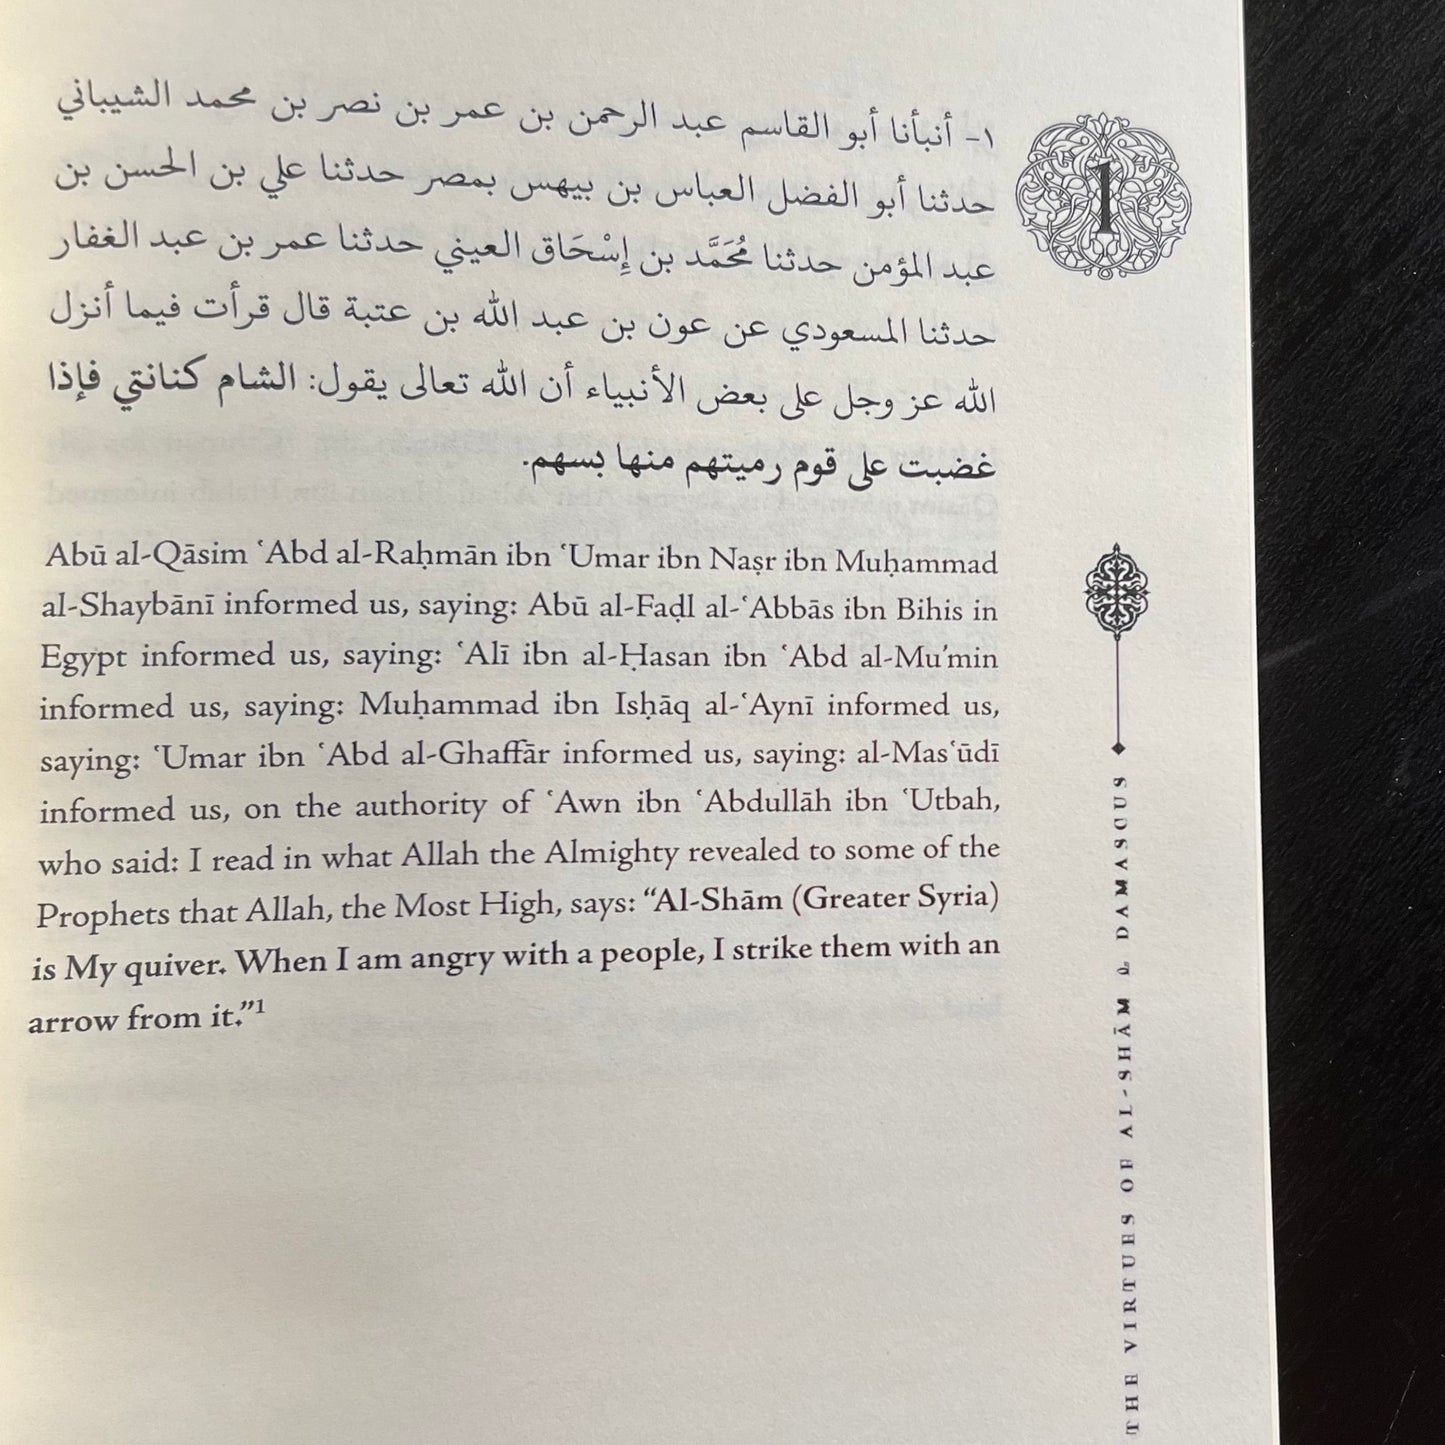 ١- أنبأنا أبو القاسم عبد الرحمن بن عمر بن نصر بن محمد الشيباني
حدثنا أبو الفضل العباس بن بيهس بمصر حدثنا علي بن الحسن بن
عبد المؤمن حدثنا مُحَمَّد بن إِسْحَاق العيني حدثنا عمر بن عبد الغفار
حدثنا المسعودي عن عون بن عبد الله بن عتبة قال قرأت فيما أنزل
الله عز وجل على بعض الأنبياء أن الله تعالى يقول: الشام كنانتي فإذا
غضبت على قوم رميتهم منها بسهم.
1
Abū al-Qāsim ʿAbd al-Raḥmān ibn ʿUmar ibn Naṣr ibn Muḥammad
al-Shaybānī informed us, saying: Abū al-Faḍl al-ʿAbbās ibn Bihis in
Egypt informed us, saying: ʿAlī ibn al-Ḥasan ibn ʿAbd al-Mu’min
informed us, saying: Muḥammad ibn Isḥāq al-ʿAynī informed us,
saying: ʿUmar ibn ʿAbd al-Ghaffār informed us, saying: al-Masʿūdī
informed us, on the authority of ʿAwn ibn ʿAbdullāh ibn ʿUtbah,
who said: I read in what Allah the Almighty revealed to some of the
Prophets that Allah, the Most High, says: “Al-Shām (Greater Syria)
is My quiver. When I am angry with a people, I strike them with an
arrow from it.”1
THE VIRTUES OF AL-SHĀM & DAMASCUS